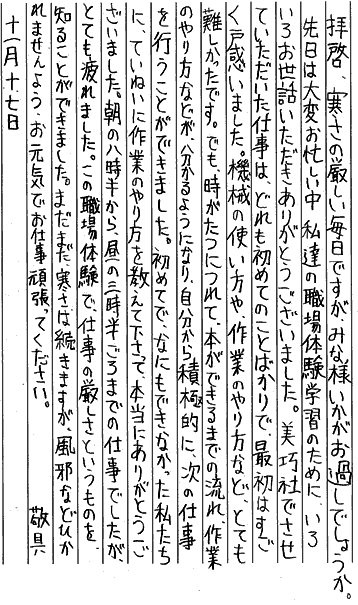 拝啓、寒さの厳しい毎日ですが、みな様いかがお過しでしょうか。
先日は大変お忙しい中、私達の職場体験学習のために、いろ
いろお世話いただき、ありがとうございました。美巧社でさせ
ていただいた仕事は、どれも初めてのことばかりで、最初はすご
く戸惑いました。機械の使い方や、作業のやり方など、とても
難しかったです。でも、時がたつにつれて、本ができるまでの流れ、作業
のやり方などが、分かるようになり、自分から積極的に、次の仕事
を行うことができました。初めてで、なにもできなかった私たち
に、ていねいに作業のやり方を教えて下さって、本当にありがとうご
ざいました。朝の八時半から、昼の三時半ごろまでの仕事でしたが、
とても疲れました。この職場体験で、仕事の厳しさというものを、
知ることができました。まだまだ、寒さは続きますが、風邪などひか
れませんよう、お元気でお仕事頑張ってください。
敬具
十一月十七日